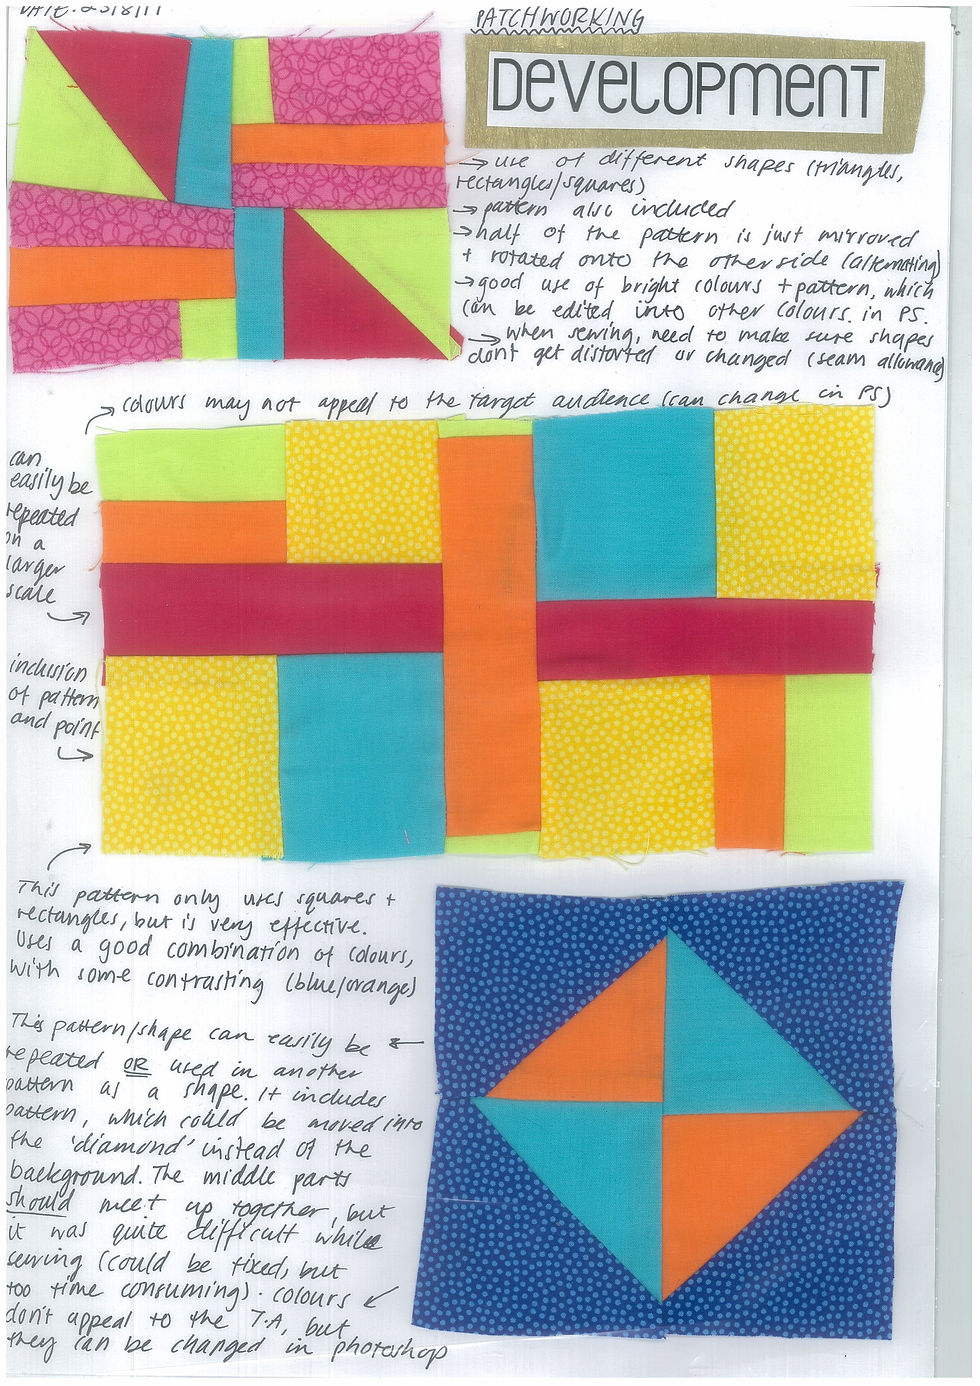 DATE: 23/8/17
PATCHWORKING
DEVELOPMENT
→ use of different shapes (triangles,
rectangles/squares)
→ pattern also included
→ half of the pattern is just mirrored
+ rotated onto the other side (alternating)
→ good use of bright colours + pattern, which
can be edited into other colours. in PS.
→ when sewing, need to make sure shapes
dont get distorted or changed (seam allowance)
colours may not appeal to the target audience (can change in PS)
can
easily be
repeated
on a
larger
scale
inclusion
of pattern
and point
This pattern only uses squares +
rectangles, but is very effective.
Uses a good combination of colours,
with some contrasting (blue/orange)
This pattern/shape can easily be
repeated OR used in another
pattern as a shape. It includes
pattern, which could be moved into
the 'diamond' instead of the
background. The middle parts
should meet up together, but
it was quite difficult while
sewing (could be fixed, but
too time consuming). colours
don't appeal to the T.A, but
they can be changed in photoshop